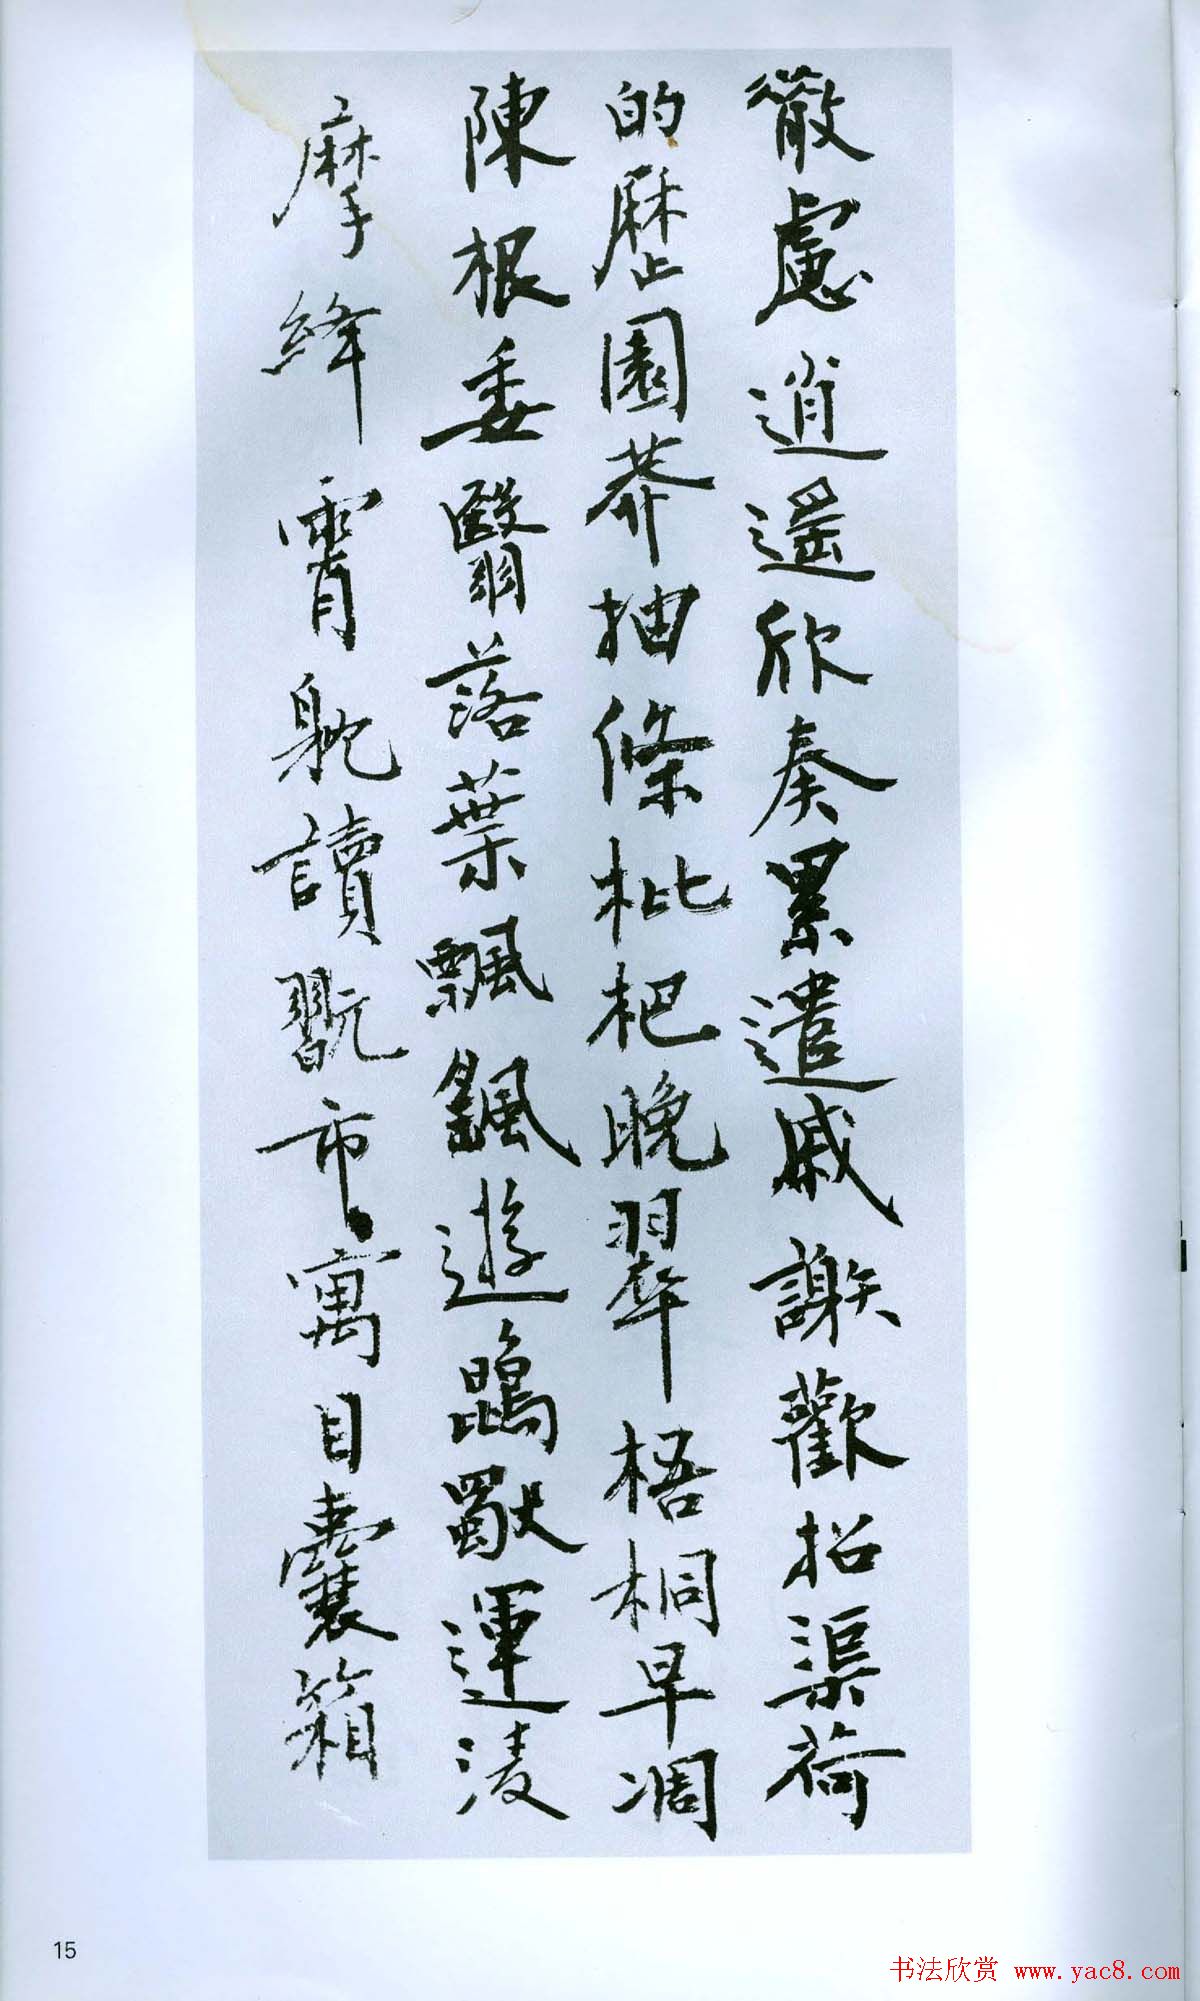 散慮逍遥欣奏累遣慼謝歡招渠荷
的歷園莽抽條枇杷晚翠梧桐早凋
陳根委翳落葉飄颻遊鵾獨運淩
摩絳霄躭讀翫市寓目囊箱
15
书法欣赏 www.yac8.com